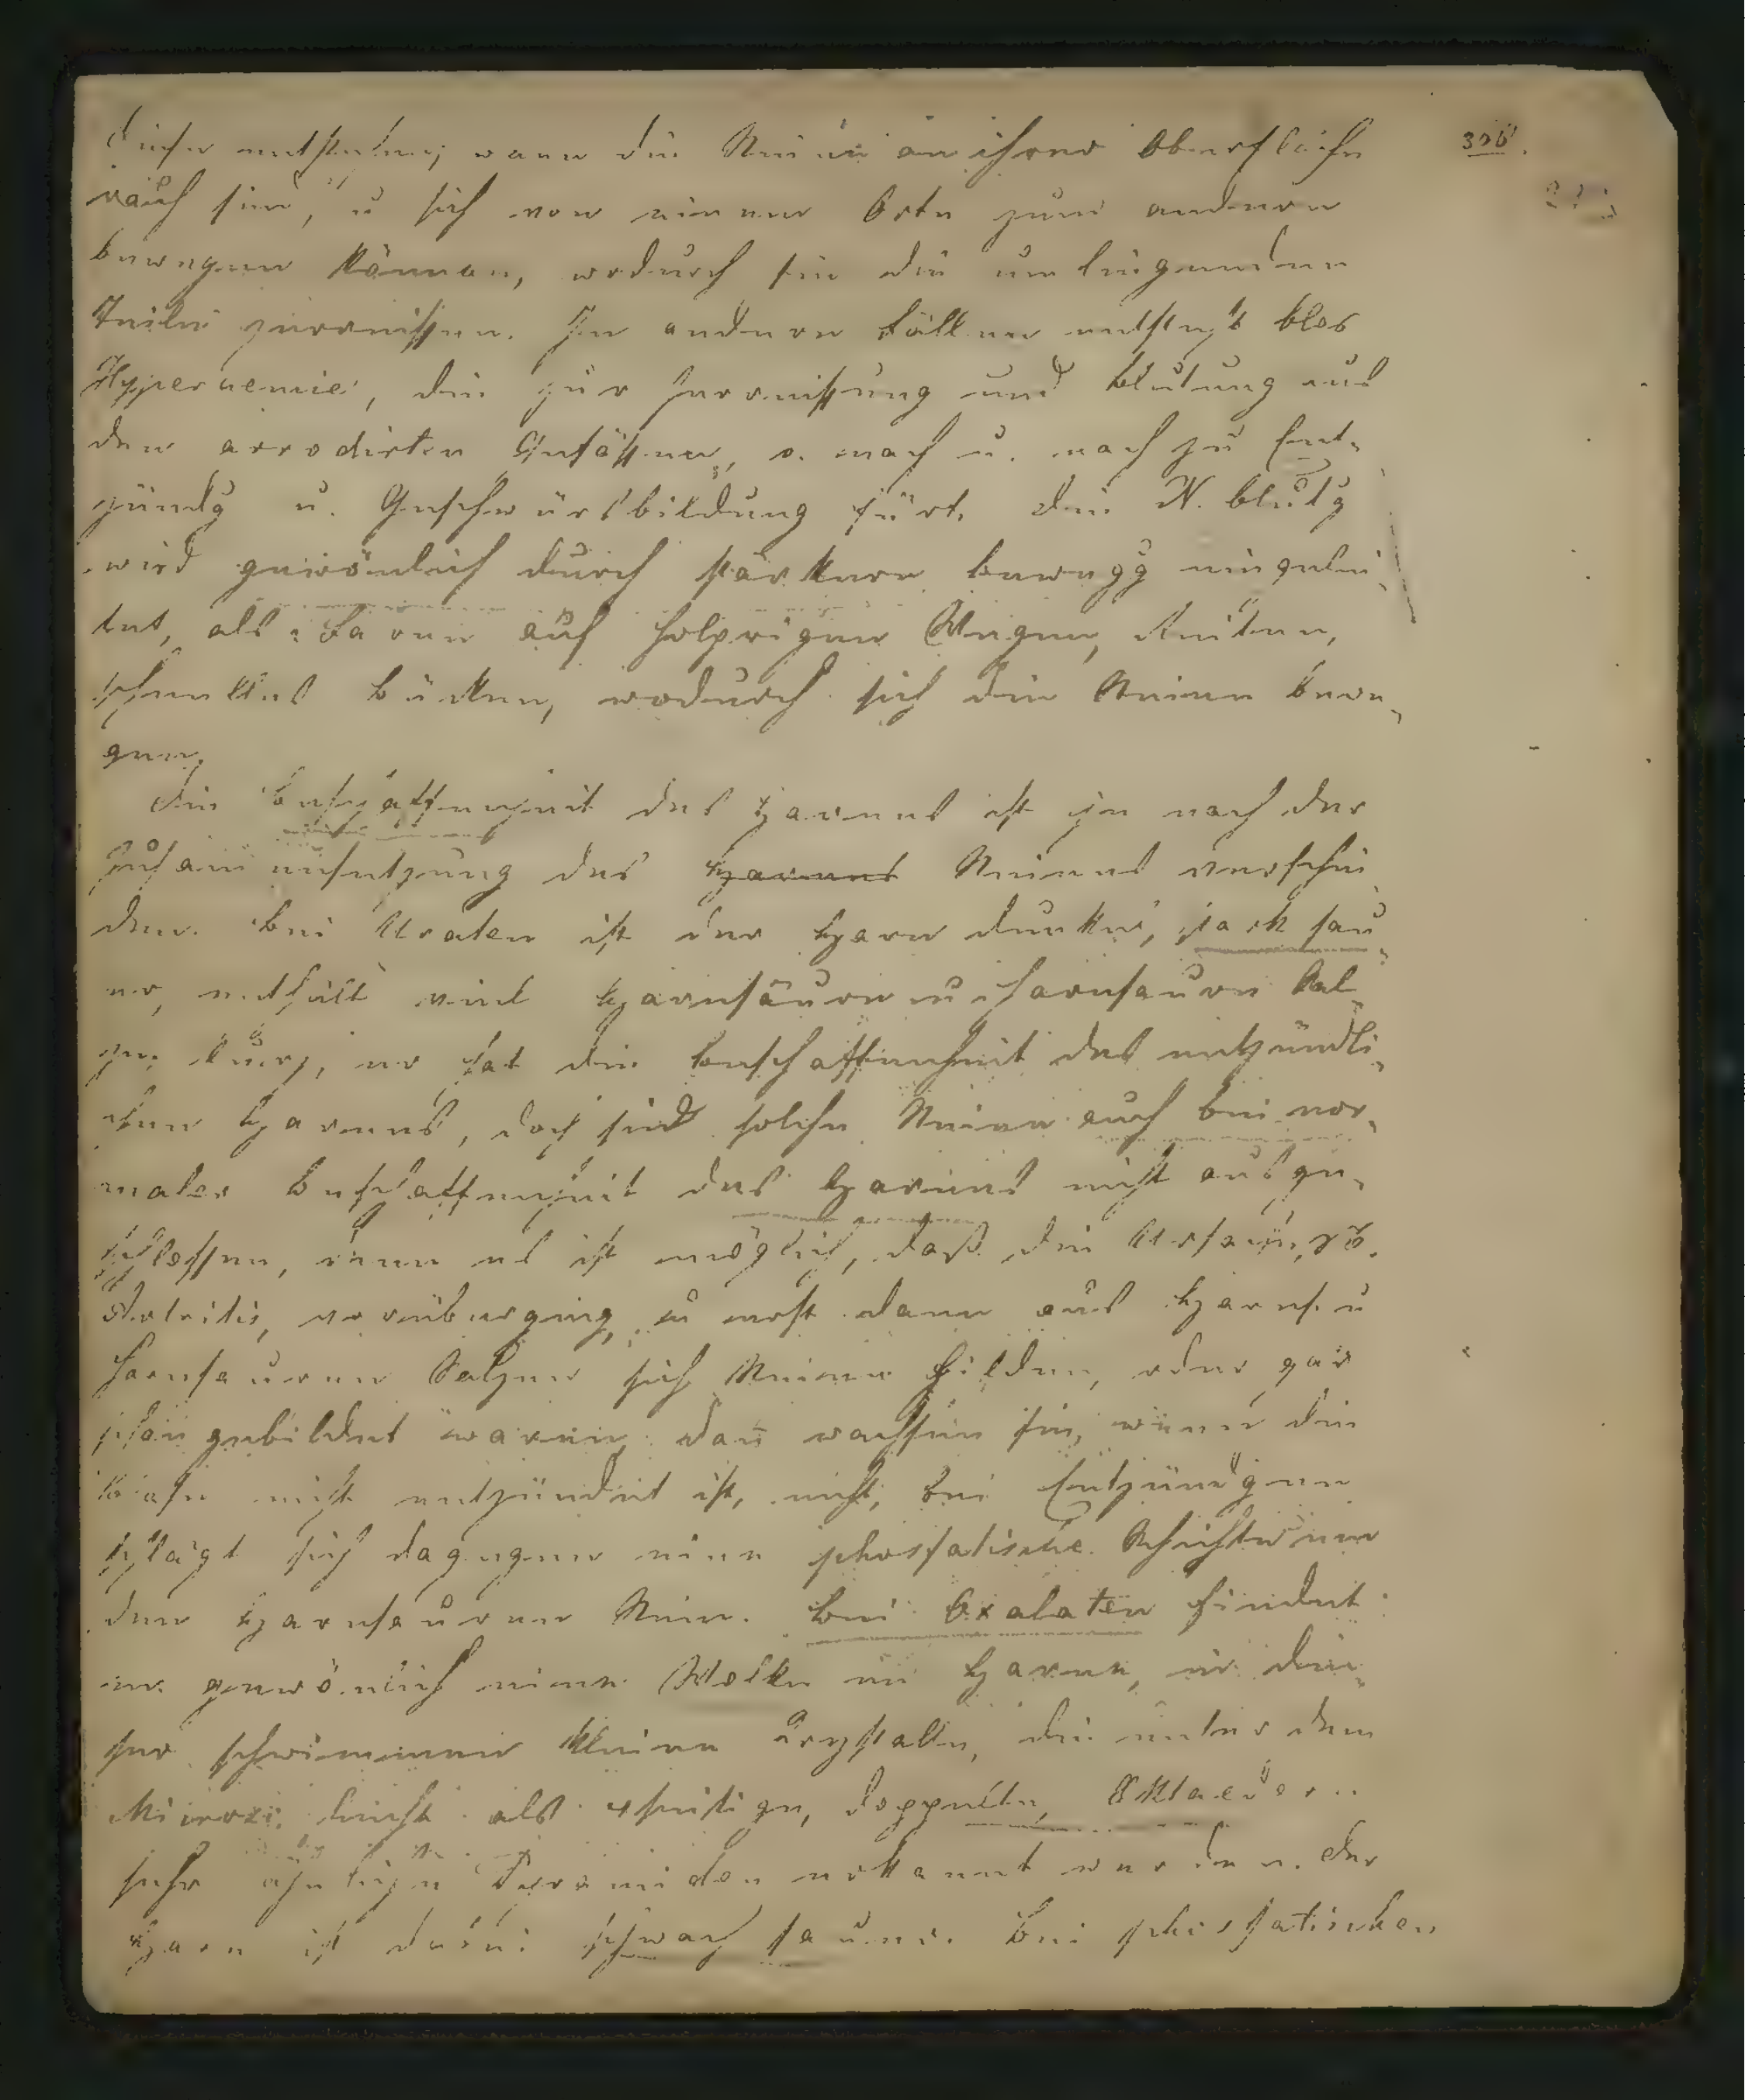 diese entstehen; wenn die Steine an ihrer Oberfläche
rauh sind, u sich von einem Orte zum anderen
bewegen können, wodurch sie die umliegenden
Teile zerreissen. In anderen Fällen entsteht blos
Hyperaemie, die zur Zerreissung und Blutung aus
den arrodirten Gefässen, o. nach u. nach zu Ent-
zündg u. Geschwürsbildung fürt. Die N. blutg
wird gewönlich durch stärkere Bewegg eingelei-
tet, als: Faren auf holprigen Wegen, Reiten,
schnelles Bücken, wodurch sich die Steine bewe-
gen.
Die Beschaffenheit des Harnes ist je nach der
Zusammensetzung des Harnes Steines verschie
den. Bei Uraten ist der Harn dunkel, stark sau-
er, enthält viel Harnsäure u harnsaure Sal-
ze, kurz, er hat die Beschaffenheit des entzündli-
chen Harnes, doch sind solche Steine auch bei nor-
maler Beschaffenheit des Harnes nicht ausge-
schlossen, denn es ist möglich, daß die
vorüberging, u erst dann aus Harns. u
harnsauren Salzen sich Steine bilden, oder gar
schon gebildet waren; dan wachsen sie, wenn die
Blase nicht entzündet ist, nicht; bei Entzündgen
schlägt sich dagegen eine phosfatische Schichte um
den harnsauren Stein. Bei Oxalaten findet
er gewönlich eine Wolke im Harne, in die-
ser schwimmen kleine Crystalle, die unter dem
leicht als 4seitige, doppelte, Oktaeder
sehr änliche Pyramiden erkannt werden. Der
Harn ist dabei schwach sauer. Bei phosfatischen